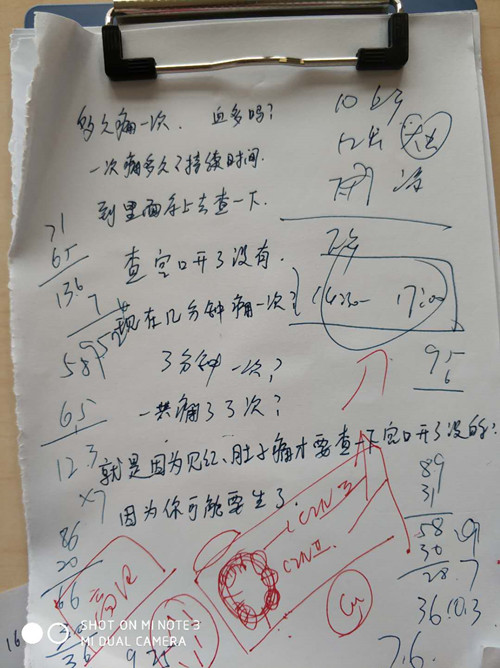 多久痛一次. 血多吗?
一次痛多久了持续时间.
到里面床上去查一下.
查宫口开了没有.
现在几分钟痛一次?
14:30- 17:00
3分钟一次?
一共痛了3次?
就是因为见红、肚子痛才要查一下宫口开了没的?
因为你可能要生了.
71
65
136
7
589
65
123
×7
86
20
66
95
6
89
31
58 .9
30
28.7
36.10.3
7.6.
CIN III
CIN II
Ca
9 25
16
SHOT ON MI NOTE 3
MI DUAL CAMERA